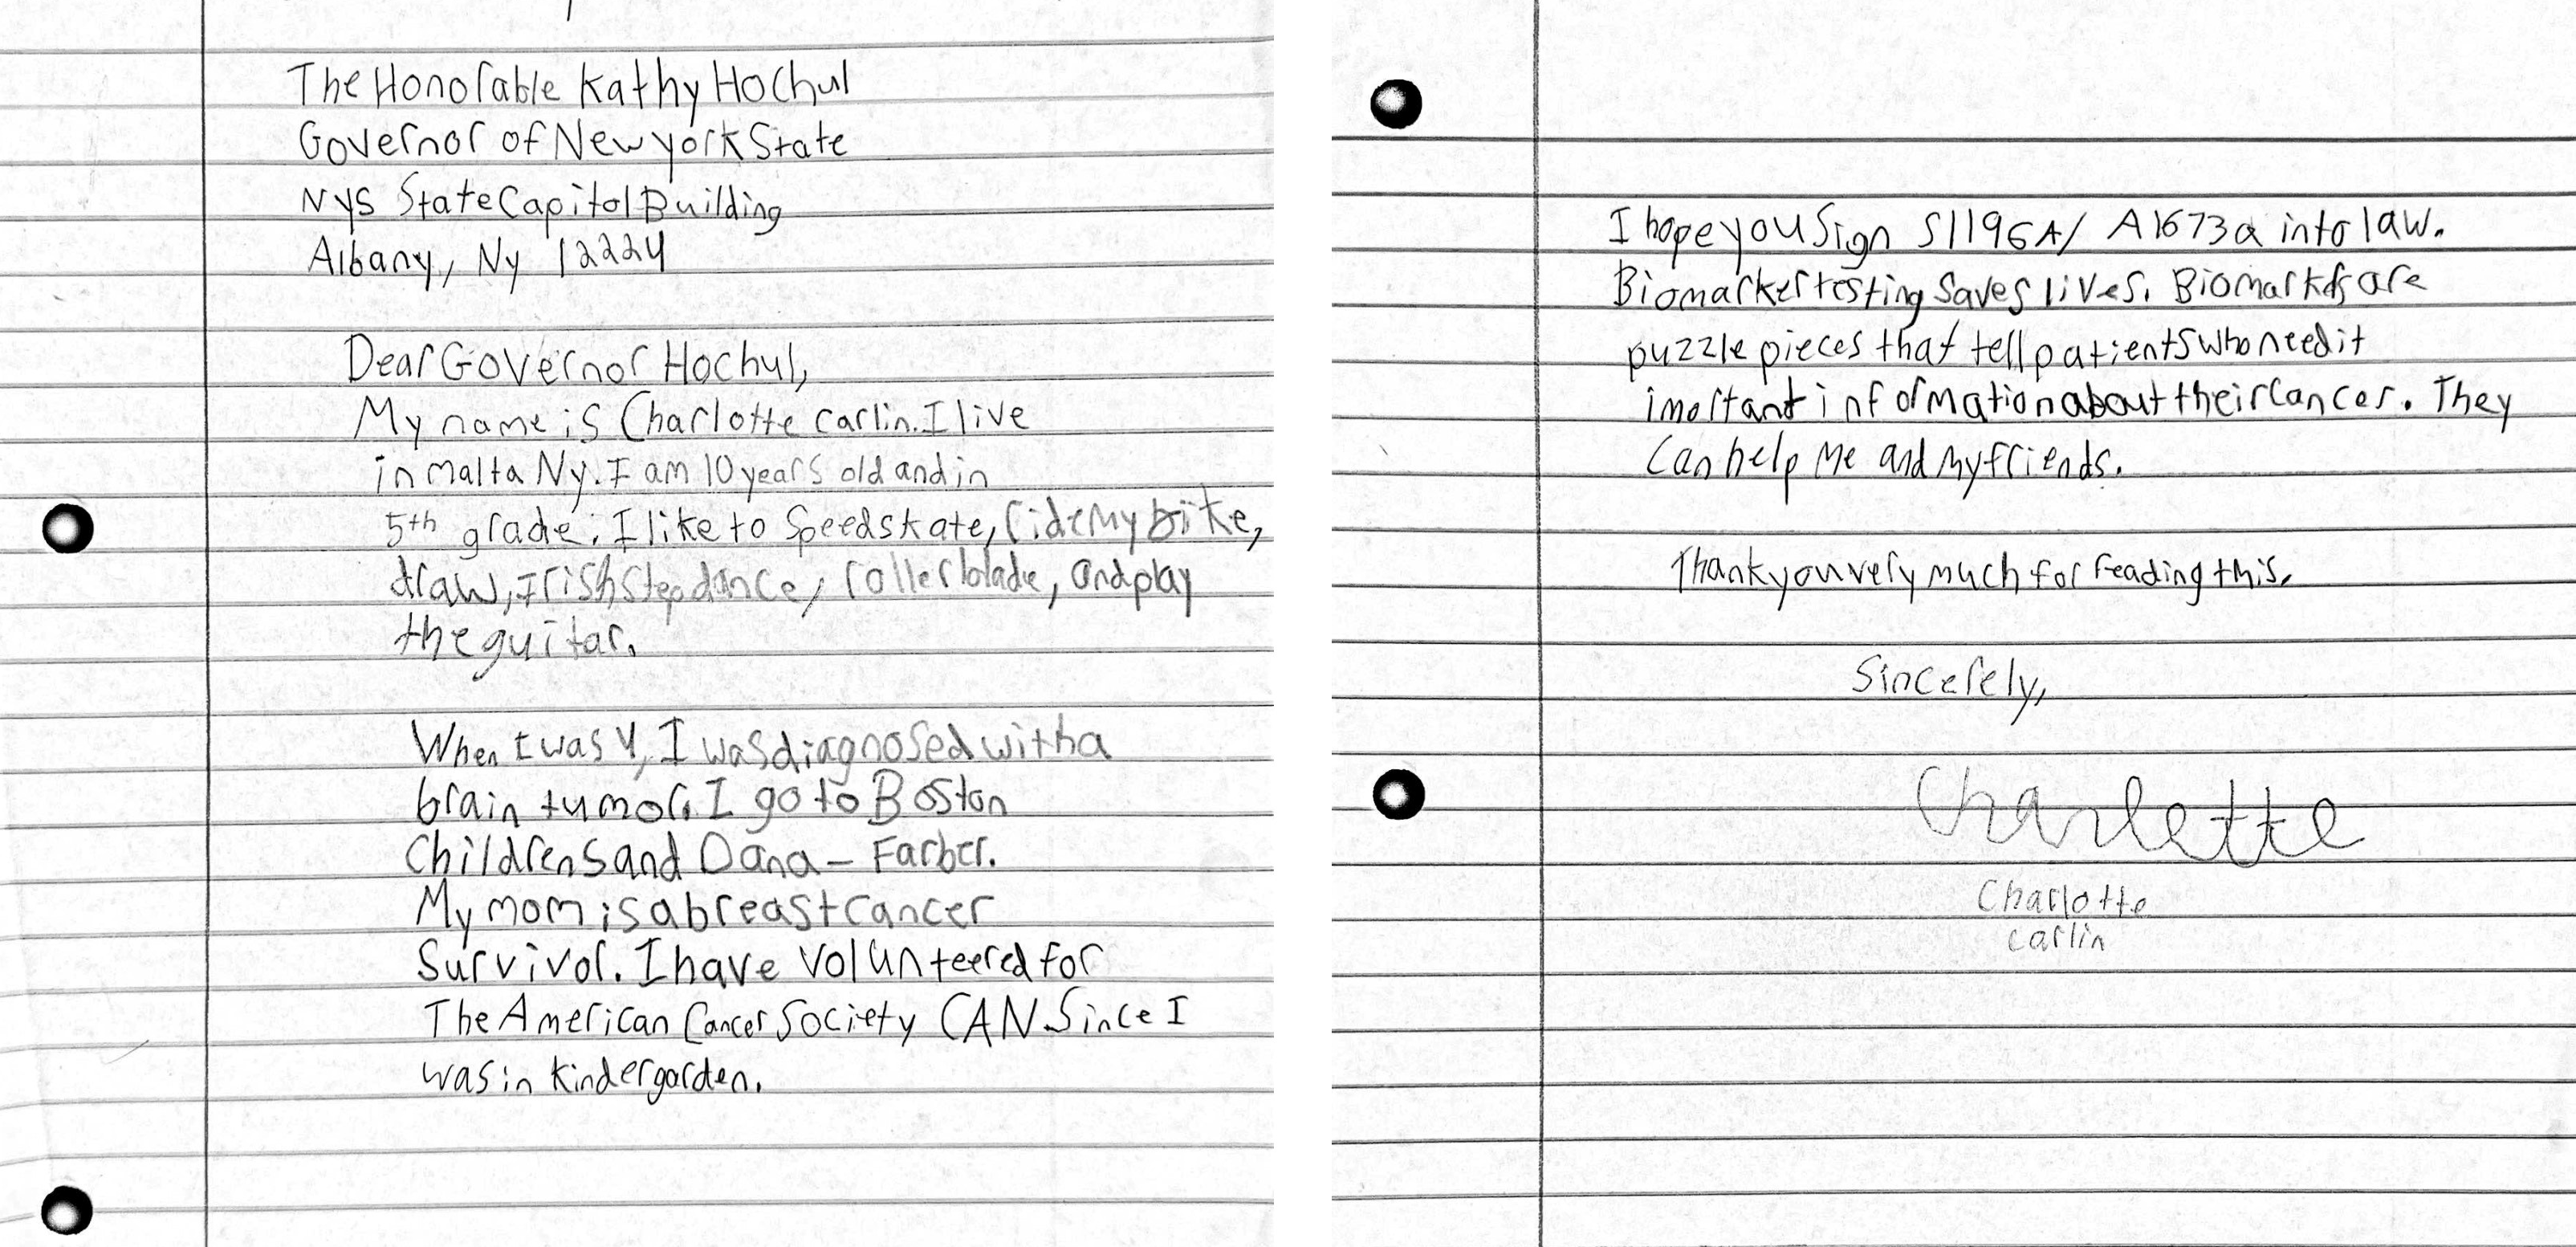 The Honorable Kathy Hochul
Governor of New york State
NYS State Capitol Building
Albany, Ny 12224
Dear Governor Hochul,
My name is Charlotte carlin. I live
in malta Ny. I am 10 years old and in
5th grade. I like to speed skate, ride my bike,
draw, Irish step dance, rollerblade, and play
the guitar.
When I was 4, I was diagnosed with a
brain tumor. I go to Boston
Childrens and Dana - Farber.
My mom is a breast cancer
Survivor. I have volunteered for
The American Cancer Society CAN Since I
was in kindergarden.
I hope you Sign S1196A/ A1673a into law.
Biomarker testing Saves lives. Biomarkers are
puzzle pieces that tell patients who need it
imortant information about their Cancer. They
Can help Me and My friends.
Thank you very much for reading this.
Sincerely,
Charlotte
Charlotte
carlin